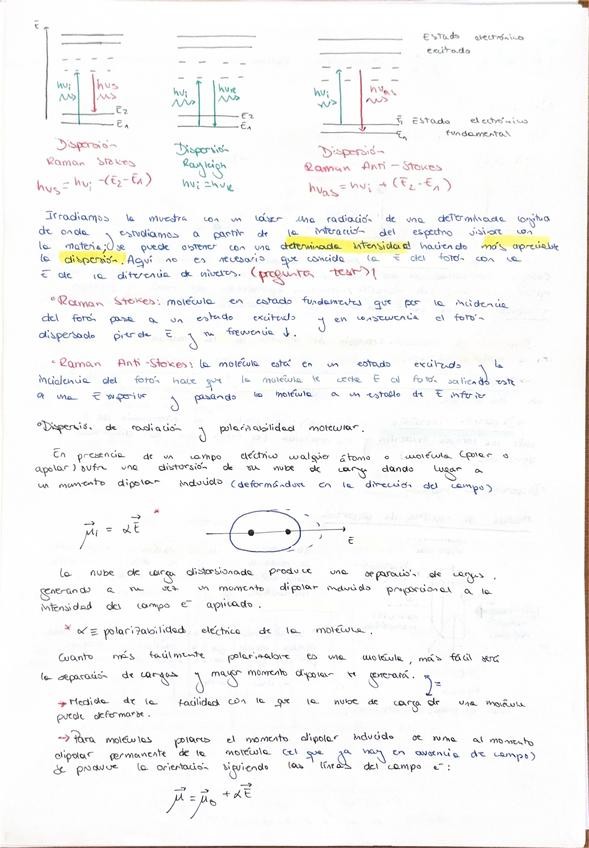 E
Estado electrónico
excitado
hνi hνs hνi hνR hνi hνas
E2
E1
E2
E1
E1 Estado electrónico
fundamental
Dispersión
Raman Stokes
hνs = hνi -(E2-E1)
Dispersión
Rayleigh
hνi = hνR
Dispersión
Raman Anti-Stokes
hνas = hνi + (E2-E1)
Irradiamos la muestra con un láser una radiación de una determinada longitud
de onda y estudiamos a partir de la interacción del espectro visible con
la materia; se puede obtener con una determinada intensidad haciendo más apreciable
la dispersión. Aquí no es necesario que coincida la E del fotón con la
E de la diferencia de niveles. (pregunta test)!
°Raman Stokes: molécula en estado fundamental que por la incidencia
del fotón pasa a un estado excitado y en consecuencia el fotón
dispersado pierde E y su frecuencia ↓.
°Raman Anti-Stokes: la molécula está en un estado excitado y la
incidencia del fotón hace que la molécula le ceda E al fotón saliendo este
a una E superior y pasando la molécula a un estado de E inferior
°Dispersión de radiación y polarizabilidad molecular.
En presencia de un campo eléctrico cualquier átomo o molécula (polar o
apolar) sufre una distorsión de su nube de carga dando lugar a
un momento dipolar inducido (deformándose en la dirección del campo)
μi = αE *
E
La nube de carga distorsionada produce una separación de cargas,
generando a su vez un momento dipolar inducido proporcional a la
intensidad del campo e⁻ aplicado.
* α ≡ polarizabilidad eléctrica de la molécula.
Cuanto más facilmente polarizable es una molécula, más fácil será
la separación de cargas y mayor momento dipolar se generará.
→ Medida de la facilidad con la que la nube de carga de una molécula
puede deformarse.
→ Para moléculas polares el momento dipolar inducido se suma al momento
dipolar permanente de la molécula (el que ya hay en ausencia de campo)
Se produce la orientación siguiendo las líneas del campo e⁻:
μ = μ0 + αE